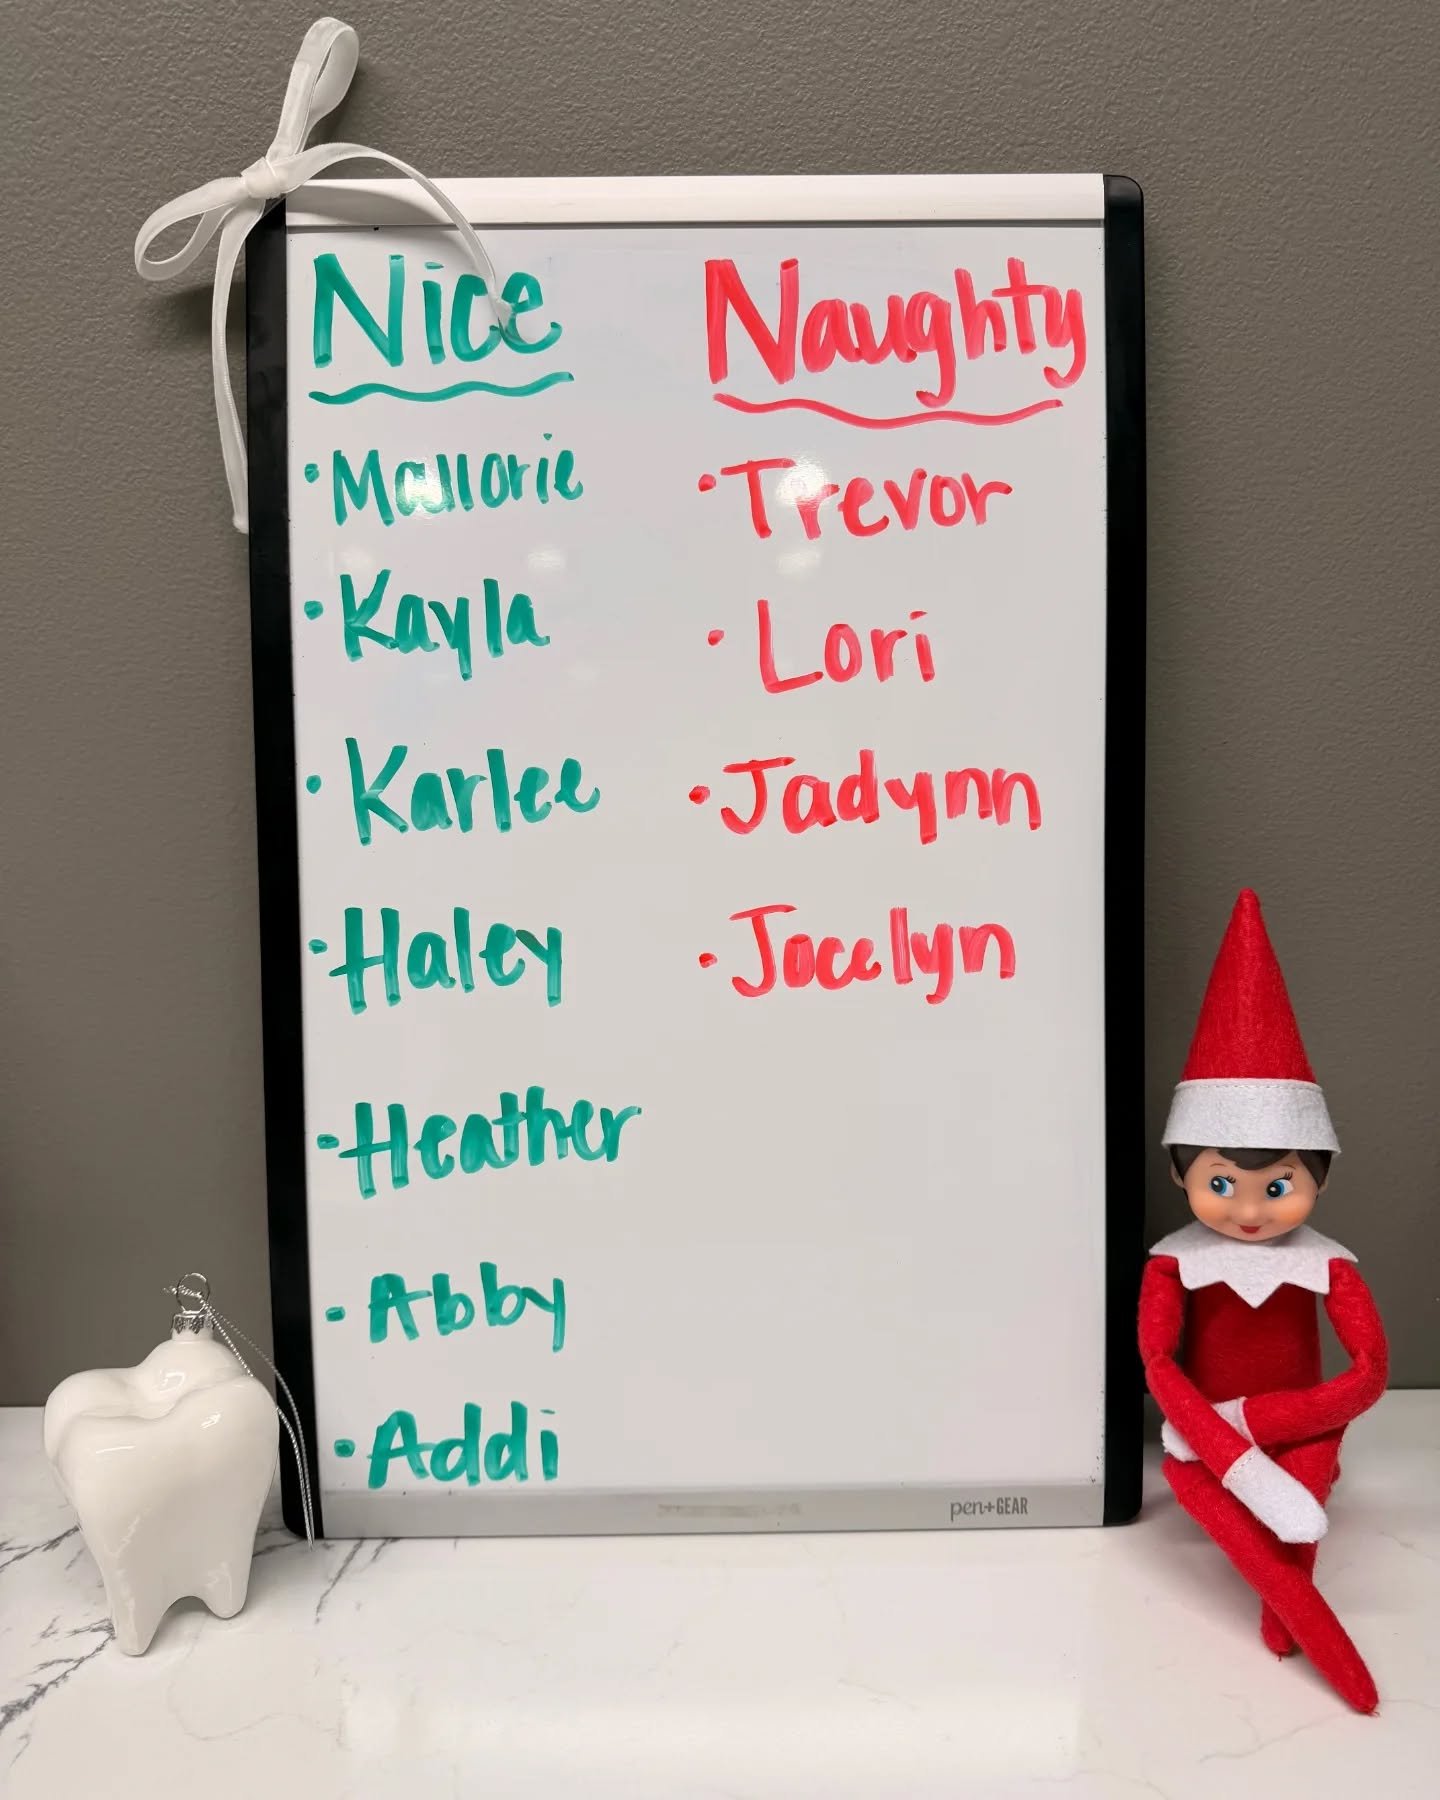 Nice
• Mallorie
• Kayla
• Karlee
• Haley
• Heather
• Abby
• Addi
Naughty
• Trevor
• Lori
• Jadynn
• Jocelyn
pen+GEAR